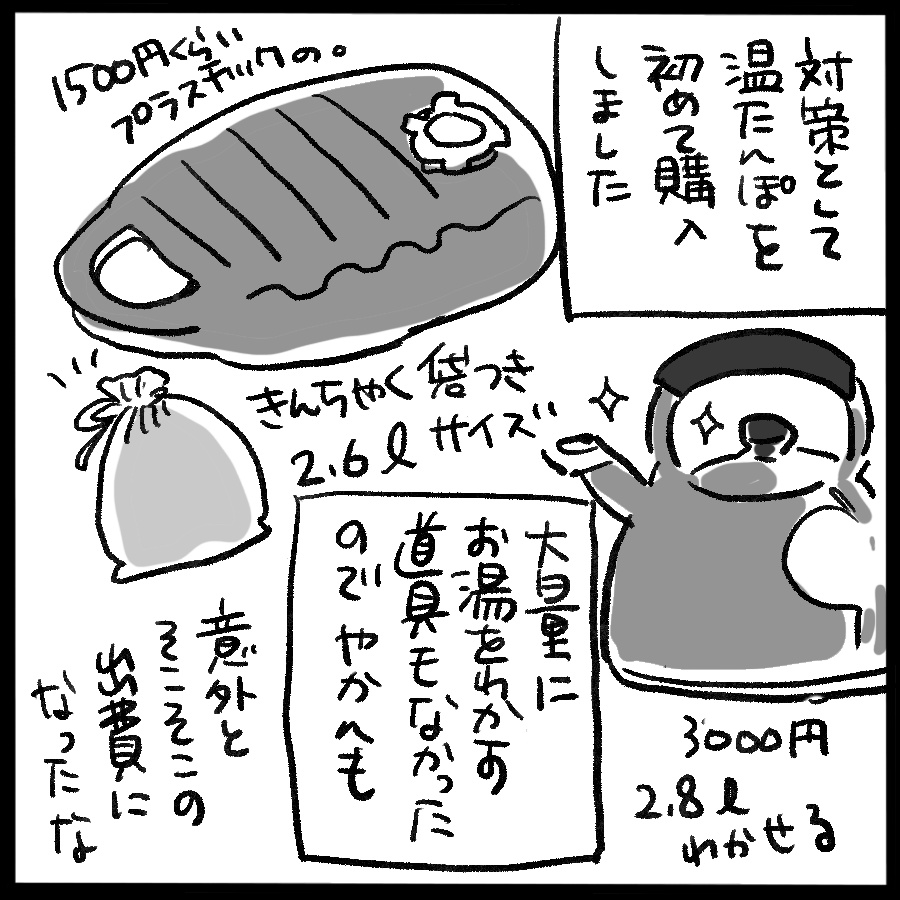 対策として
温たんぽを
初めて購入
しました
1500円くらい
プラスチックの。
きんちゃく袋つき
2.6ℓサイズ
大量に
お湯をわかす
道具モなかった
のでやかんも
3000円
2.8ℓ
わかせる
意外と
そこそこの
出費に
なったな